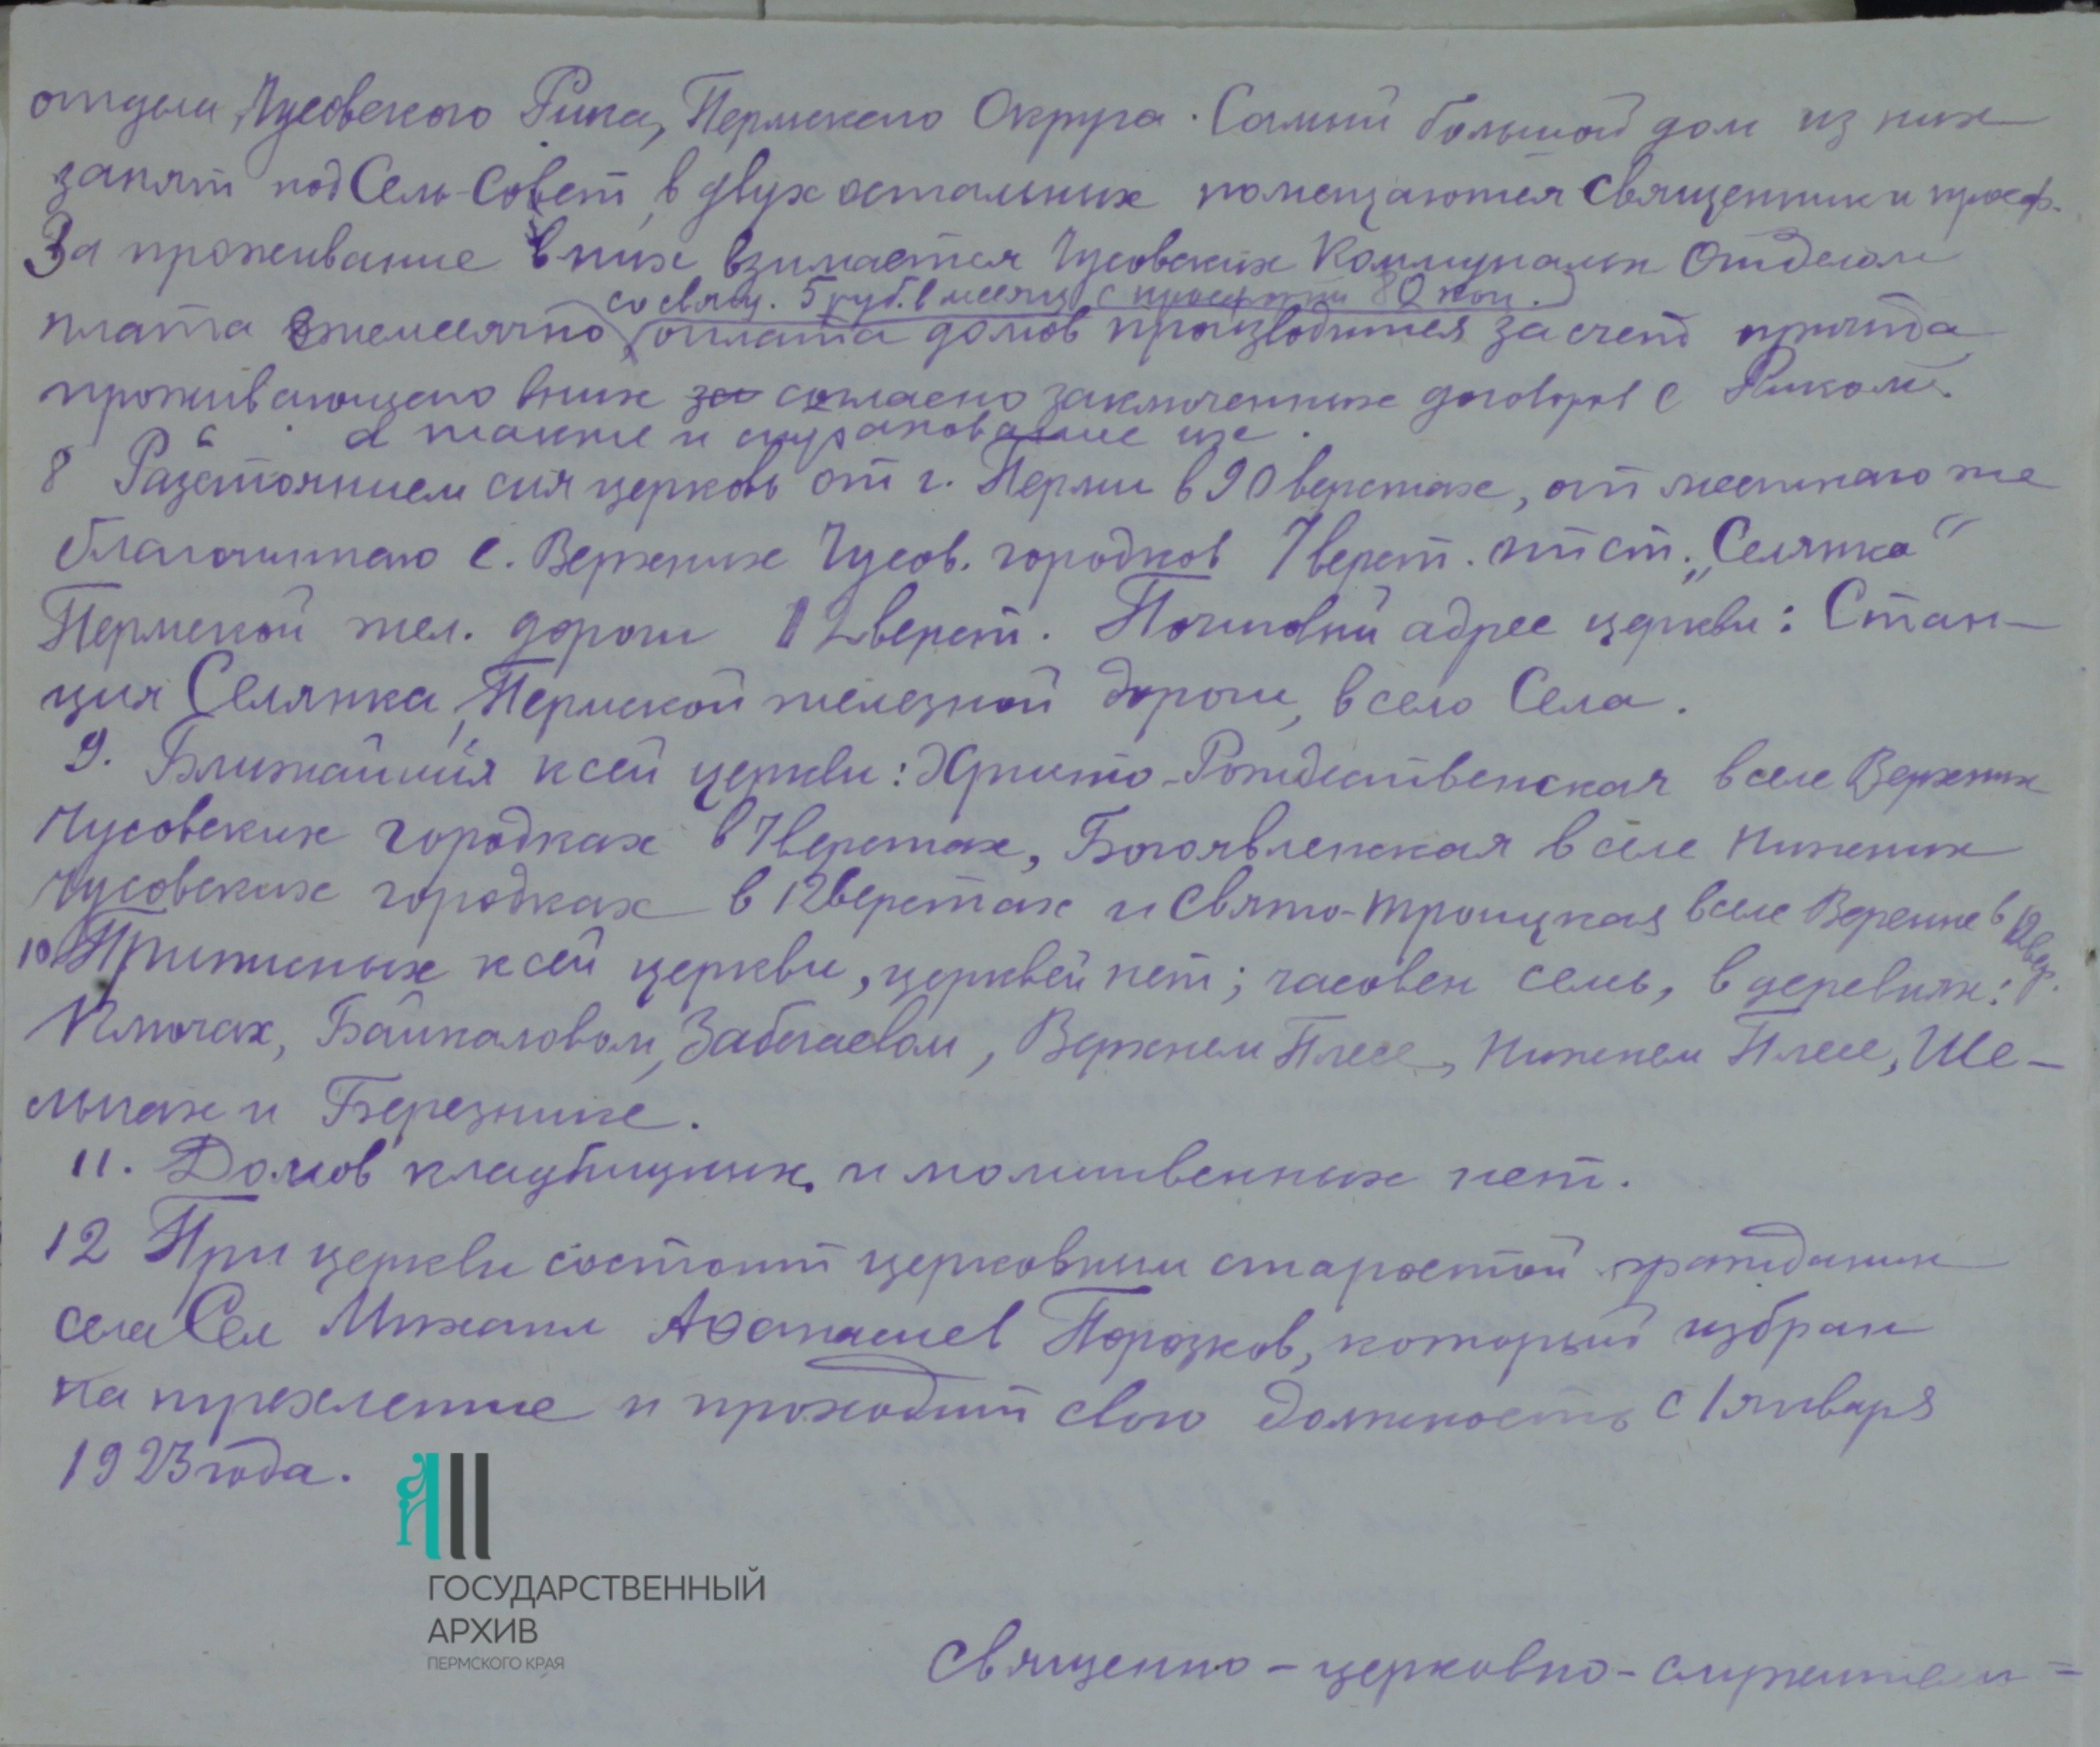 отдела Чусовского Рика, Пермского Округа. Самый большой дом из них
занят под Сель-Совет, в двух остальных помещаются священник и просф.
За проживание в них взимается Чусовских Коммунальн Отделом
со свящ. 5 руб. в месяц с просфорни 80 коп.
плата ежемесячно, оплата домов производится за счет причта
проживающего в них за согласно заключенных договоров с Риком.
а также и страхование их.
8 Разстоянием сия церковь от г. Перми в 90 верстах, от местнаго же
благочиннаго с. Верхних Чусов. городков 7 верст. от ст. „Селянка"
Пермской жел. дороги 12 верст. Почтовый адрес церкви: Стан-
ция Селянка, Пермской железной дороги, в село Села.
9. Ближайшия к сей церкви: Христо-Рождественская в селе Верхних
Чусовских городках в 7 верстах, Богоявленская в селе Нижних
Чусовских городках в 12 верстах и Свято-Троицкая в селе Верейне в 12 вер.
10 Приписных к сей церкви, церквей нет; часовен семь, в деревнях:
Ключах, Байкаловом, Забегаевом, Верхнем Плесе, Нижнем Плесе, Ше-
льгах и Березнике.
11. Домов кладбищных и молитвенных нет.
12 При церкви состоит церковным старостой гражданин
села Сел Михаил Афанасиев Порозков, который избран
на трехлетие и проходит свою должность с 1 января
1923 года.
ГОСУДАРСТВЕННЫЙ
АРХИВ
ПЕРМСКОГО КРАЯ
Священно-церковно-служители=